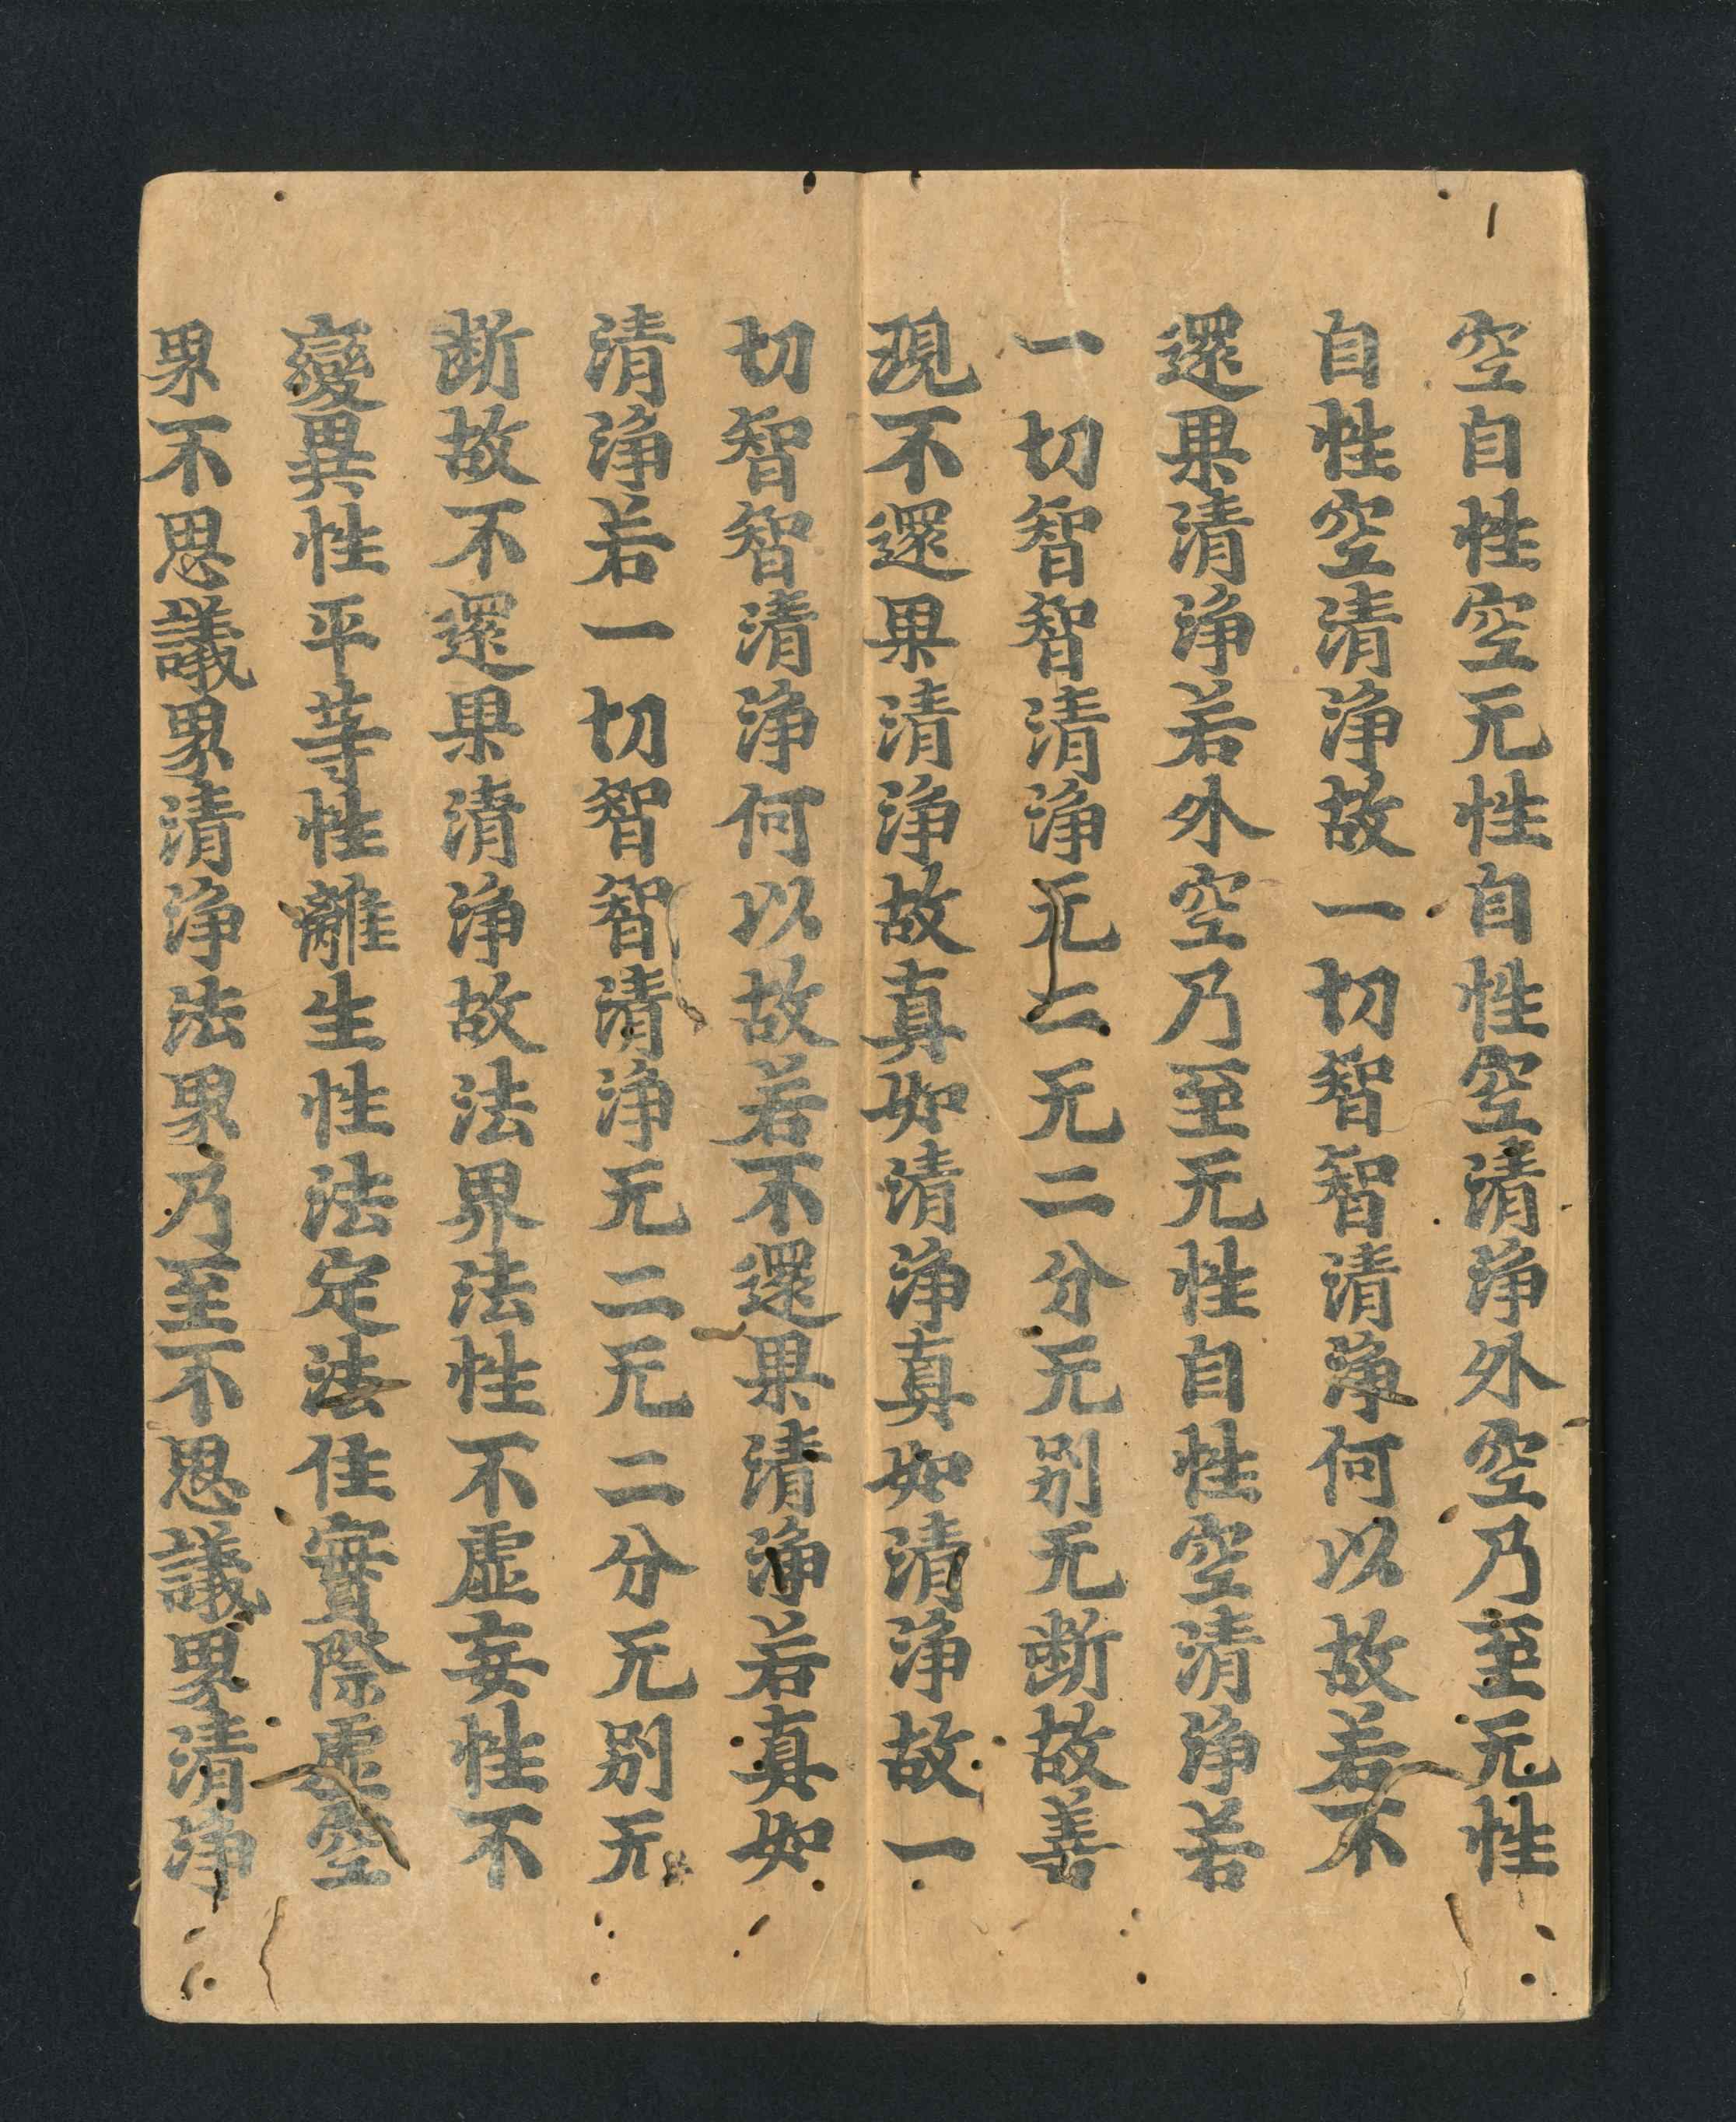 空自性空无性自性空清淨外空乃至无性
自性空清淨故一切智智清淨何以故若不
還果清淨若外空乃至无性自性空清淨若
一切智智清淨无二无二分无別无斷故善
現不還果清淨故真如清淨真如清淨故一
切智智清淨何以故若不還果清淨若真如
清淨若一切智智清淨无二无二分无別无
断故不還果清淨故法界法性不虛妄性不
變異性平等性離生性法定法住實際虛空
界不思議界清淨法界乃至不思議界清淨